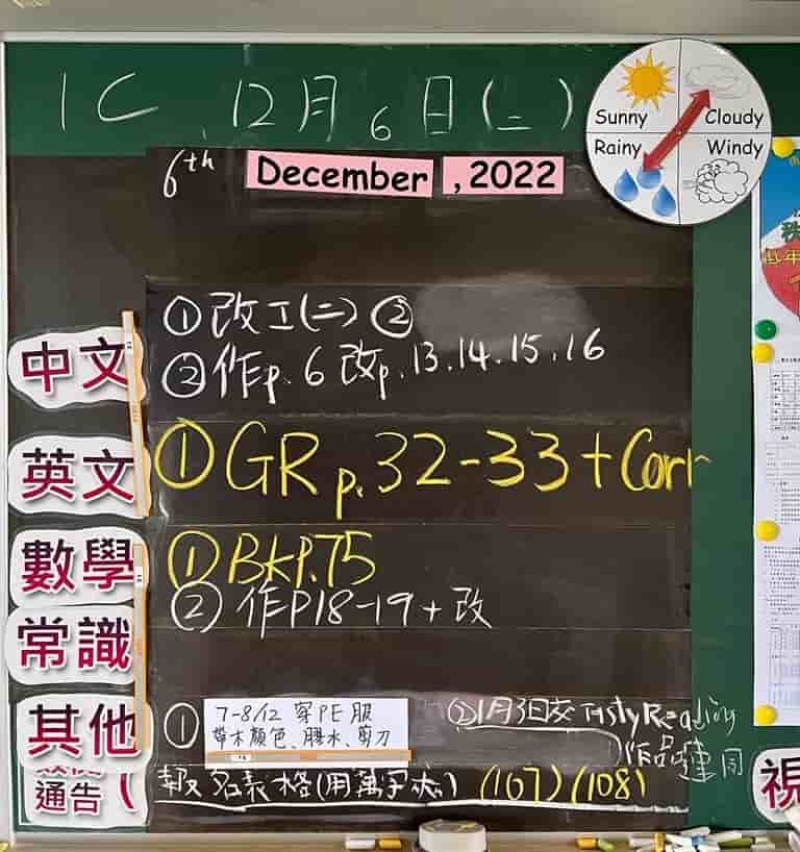 1C 12月6日(二)
Sunny
Cloudy
Rainy
Windy
6th December , 2022
中文
①改工(二)②
②作p.6 改p.13.14.15.16
英文
①GR p.32-33+Corr
數學
①BKP.75
②作P18-19+改
常識
其他
①
7-8/12 穿PE服
帶木顏色、膠水、剪刀
②1月3日交 Tasty Reading
作品連同
通告
報名表格(用萬字夾) (107)(108)
視